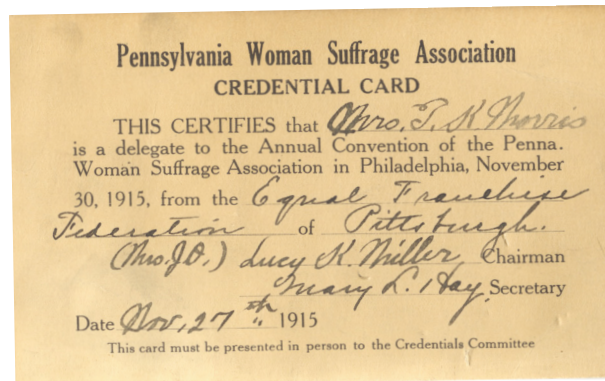 Pennsylvania Woman Suffrage Association
CREDENTIAL CARD
THIS CERTIFIES that Mrs. T. K Morris
is a delegate to the Annual Convention of the Penna.
Woman Suffrage Association in Philadelphia, November
30, 1915, from the Equal Franchise
Federation of Pittsburgh.
(Mrs. J. O.) Lucy K. Miller, Chairman
Mary L. Hay, Secretary
Date Nov. 27th 1915
This card must be presented in person to the Credentials Committee